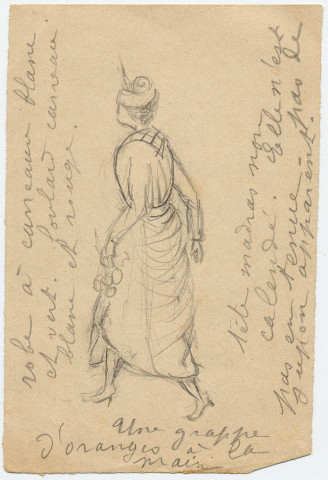 robe à carreaux blanc
et vert. foulard carreau
blanc et rouge.
tête madras non
calendé. Elle n'est
pas en tenue pas de
jupon apparent.
Une grappe
d'oranges à la
main